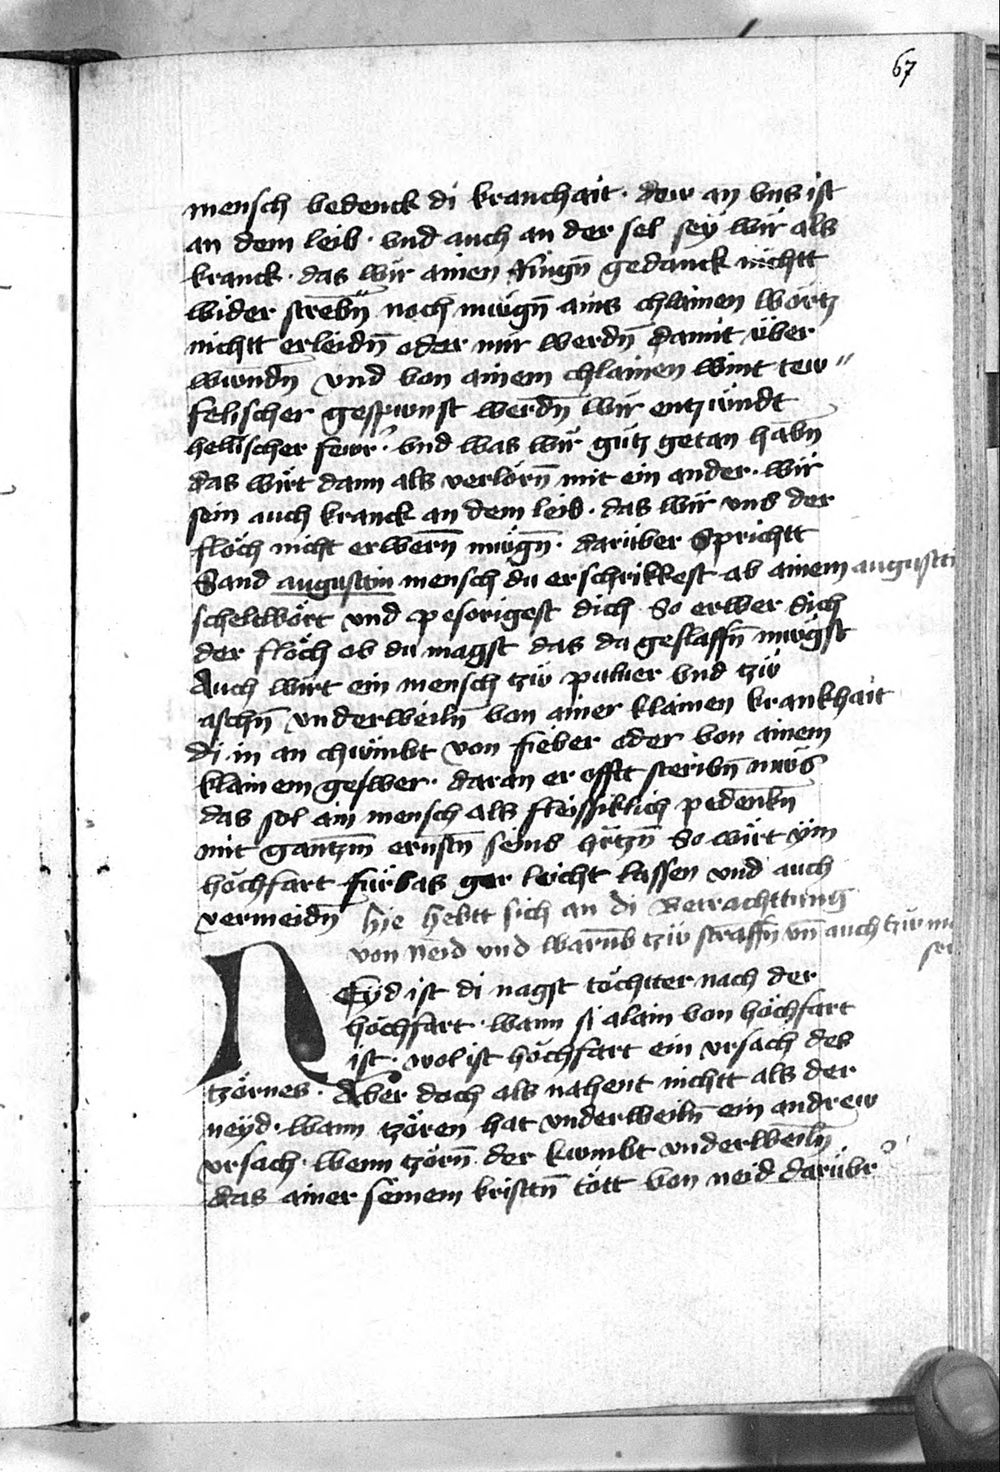 67
mensch bedenck di kranchait · dew an vns ist
an dem leib · vnd auch an der sel sey wir als
kranck · das wir ainen ringn̄ gedanck nichtt
wider strebn̄ noch mügn̄ ains chlainen wortz
nichtt erleidn̄ oder mir werdn̄ damit über
wundn̄ vnd von ainem chlainen wint tew〃
felischer gespunst werdn̄ wir entzündt
hellischer fewr · vnd was wir gutz getan habn̄
das wirt dann als verlorn̄ mit ein ander · wir
sein auch kranck an dem leib · das wir vns der
flöch nicht erwern̄ mügn̄ · darüber Sprichtt
Sand augustin mensch du erschrikkest ab ainem augustti
scheltwort vnd pesorigest dich So erwer dich
der flöch ob du magst das du geslaffn̄ mügst
Auch wirt ein mensch tzw puluer vnd tzw
aschn̄ vnderweiln̄ von ainer klainen krankhait
di in an chumbt von fieber oder von ainem
klainem geswer · daran er offtt steribn̄ mus
das sol ain mensch als fleissiklich pedenkn̄
mit gantzm̄ ernstn̄ seins hertzn̄ So wirt ym
hochfart fürbas gar leicht lassen vnd auch
vermeidn̄ hie hebtt sich an di Betrachttung
von neid vnd warumb tzw straffn̄ vn̄ auch tzw
NEyd ist di nagst töchtter nach der
hochfart · wann si alain von hochfart
ist · wol ist hochfart ein vrsach des
tzornes · Aber doch als nahent nichtt als der
neyd · wann tzoren hat vnderweiln̄ ein andrew
vrsach · wenn tzorn̄ der kumbt vnderweiln̄
das ainer seinem kristtn̄ tött von neid darübr